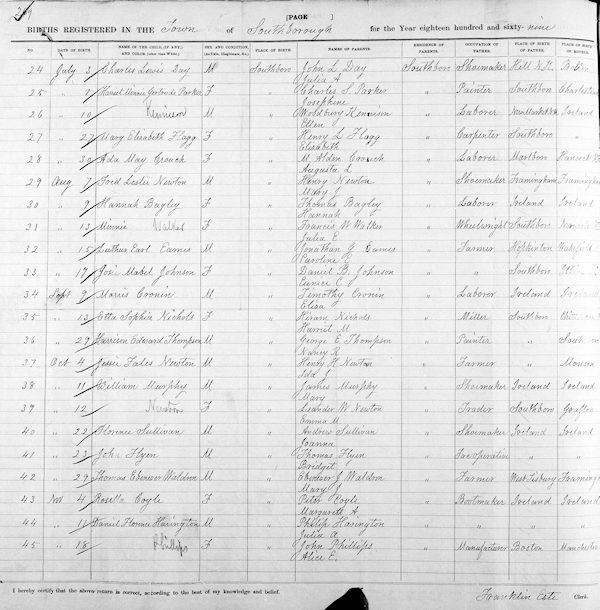 [PAGE ]
BIRTHS REGISTERED IN THE Town of Southborough for the Year eighteen hundred and sixty-nine
NO. DATE OF BIRTH. NAME OF THE CHILD, (IF ANY,) AND COLOR (other than White). SEX AND CONDITION, PLACE OF BIRTH. NAMES OF PARENTS. RESIDENCE OF PARENTS. OCCUPATION OF FATHER. PLACE OF BIRTH OF FATHER. PLACE OF BIRTH OF MOTHER.
24 July 3 Charles Lewis Day M Southboro John L Day Southboro Shoemaker
Julia A
25 " 7 Gertrude Parker F " Charles S Parker " Painter Southboro
Josephine
26 " 10 Kennison M " Woodbury Kennison " Laborer Ireland
Ellen
27 " 27 Mary Elizabeth Flagg F " Henry L Flagg " Carpenter Southboro "
Elizabeth
28 " 30 Ada May Crouch F " M Alden Crouch " Laborer Marlboro
Augusta L
29 Aug 7 Fred Leslie Newton M " Henry Newton " Shoemaker Framingham Framingham
Mary J
30 " 9 Hannah Bagley F " Thomas Bagley " Laborer Ireland Ireland
Hannah
31 " 13 Minnie Walker F " Francis W Walker " Wheelwright Southboro
Julia E
32 " 15 Luther Earl Eames M " Jonathan G Eames " Farmer Hopkinton Wakefield
Caroline E
33 " 19 Josie Mabel Johnson F " Daniel B Johnson " " Southboro
Eunice C
34 Sept 9 Morris Cronin M " Timothy Cronin " Laborer Ireland Ireland
Eliza
35 " 13 Etta Sophie Nichols F " Hiram Nichols " Miller Southboro
Harriet M
36 " 29 Harrison Edward Thompson M " George E Thompson " Painter "
Nancy R
37 Oct 4 Jessie Fales Newton M " Henry H Newton " Farmer " Monson
Ida J
38 " 11 William Murphy M " James Murphy " Shoemaker Ireland Ireland
Mary
39 " 12 Newton F " Leander W Newton " Trader Southboro Grafton
Emma M
40 " 22 Florence Sullivan M " Andrew Sullivan " Shoemaker Ireland Ireland
Joanna
41 " 23 John Flyen M " Thomas Flyen " " "
Bridget
42 " 29 Thomas Ebenezer Waldron M " Ebenezer J Waldron " Farmer West Tisbury Framingham
Mary J
43 Nov 4 Rosella Coyle F " Peter Coyle " Bootmaker Ireland Ireland
Margareth A
44 " 11 Daniel Florence Harington M " Philip Harington " " " "
Julia A
45 " 18 Phillips F " John Phillips " Manufacturer Boston Manchester
Alice E.
I hereby certify that the above return is correct, according to the best of my knowledge and belief.
Franklin Clerk.